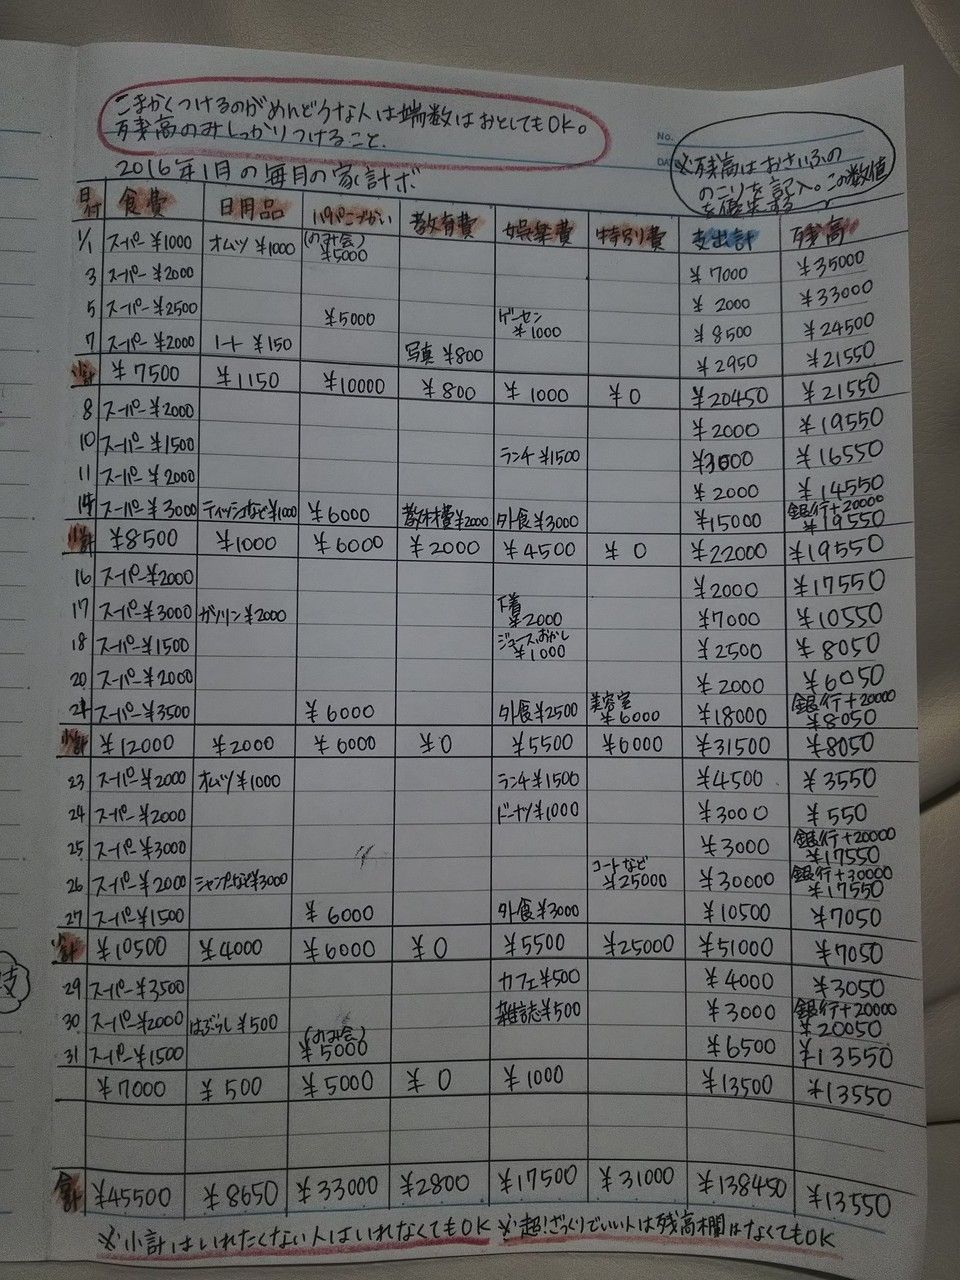 こまかくつけるのがめんどうな人は端数はおとしてもOK。
残高のみしっかりつけること。
No.
DATE
※残高はおさいふの
のこりを記入。この数値
2016年1月の毎月の家計ボ
日付 食費 日用品 パパこづかい 教育費 娯楽費 特別費 支出計 残高
1/1 スーパー¥1000 オムツ¥1000 (のみ会)¥5000 ¥7000 ¥35000
3 スーパー¥2000 ¥2000 ¥33000
5 スーパー¥2500 ¥5000 ゲーセン¥1000 ¥8500 ¥24500
7 スーパー¥2000 ノート¥150 写真¥800 ¥2950 ¥21550
小計 ¥7500 ¥1150 ¥10000 ¥800 ¥1000 ¥0 ¥20450 ¥21550
8 スーパー¥2000 ¥2000 ¥19550
10 スーパー¥1500 ランチ¥1500 ¥3000 ¥16550
11 スーパー¥2000 ¥2000 ¥14550
14 スーパー¥3000 ティッシュなど¥1000 ¥6000 教材費¥2000 外食¥3000 ¥15000 銀行+20000 ¥19550
小計 ¥8500 ¥1000 ¥6000 ¥2000 ¥4500 ¥0 ¥22000 ¥19550
16 スーパー¥2000 ¥2000 ¥17550
17 スーパー¥3000 ガソリン¥2000 下着¥2000 ¥7000 ¥10550
18 スーパー¥1500 ジュースおかし¥1000 ¥2500 ¥8050
20 スーパー¥2000 ¥2000 ¥6050
21 スーパー¥3500 ¥6000 外食¥2500 美容室¥6000 ¥18000 銀行+20000 ¥8050
小計 ¥12000 ¥2000 ¥6000 ¥0 ¥5500 ¥6000 ¥31500 ¥8050
23 スーパー¥2000 オムツ¥1000 ランチ¥1500 ¥4500 ¥3550
24 スーパー¥2000 ドーナツ¥1000 ¥3000 ¥550
25 スーパー¥3000 ¥3000 銀行+20000 ¥17550
26 スーパー¥2000 シャンプなど¥3000 コートなど¥25000 ¥30000 銀行+30000 ¥17550
27 スーパー¥1500 ¥6000 外食¥3000 ¥10500 ¥7050
小計 ¥10500 ¥4000 ¥6000 ¥0 ¥5500 ¥25000 ¥51000 ¥7050
29 スーパー¥3500 カフェ¥500 ¥4000 ¥3050
30 スーパー¥2000 はぶらし¥500 雑誌¥500 ¥3000 銀行+20000 ¥20050
31 スーパー¥1500 (のみ会)¥5000 ¥6500 ¥13550
¥7000 ¥500 ¥5000 ¥0 ¥1000 ¥13500 ¥13550
合計 ¥45500 ¥8650 ¥33000 ¥2800 ¥17500 ¥31000 ¥138450 ¥13550
※小計はいれたくない人はいれなくてもOK ※超!ざっくりでいい人は残高欄はなくてもOK